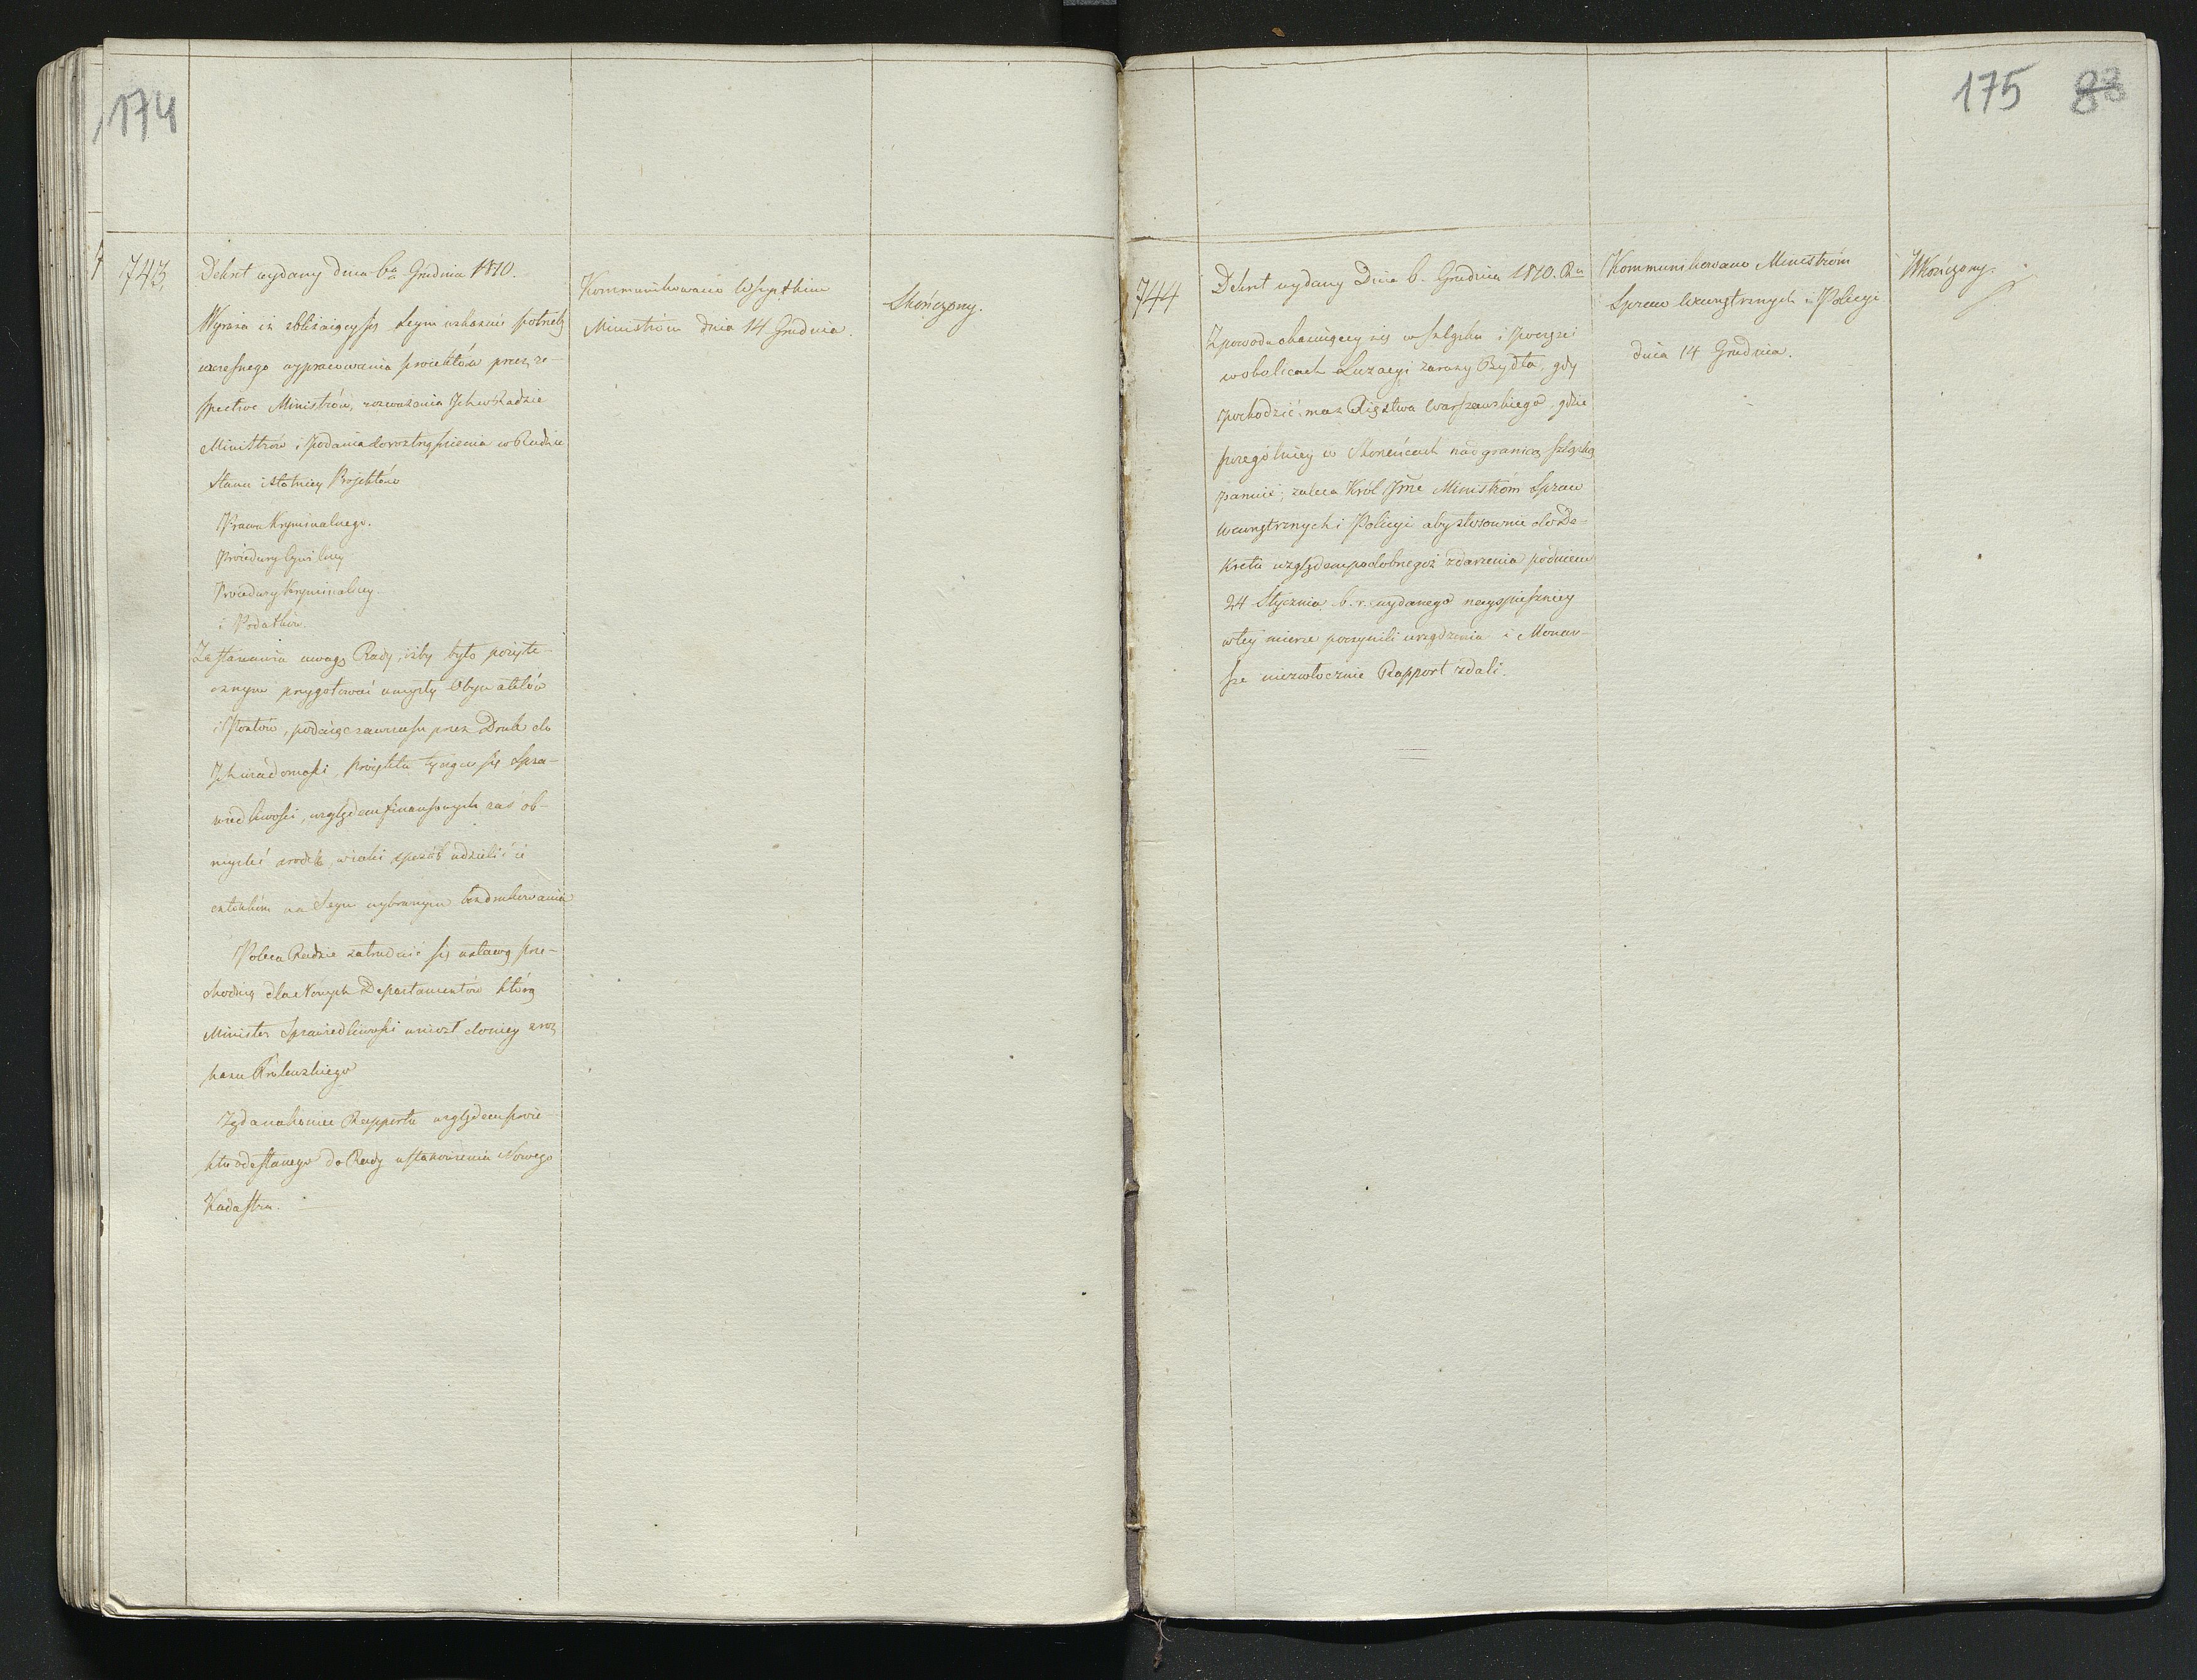 174
743.
Dekret wydany dnia 6go Grudnia 1810.
Wyraża iż zbliżaiący się Seym wskazuie potrzebę
wczesnego wypracowania proiektów przez re-
spective Ministrów, rozważania Ich w Radzie
Ministrów i podania do roztrząśnienia w Radzie
Stanu istotniey Projektów
Prawa Kryminalnego.
Procedury Cywilney
Procedury Kryminalney.
i Podatków.
Zastanawia uwagę Rady, iżby było pożyte-
cznym przygotować umysły Obywatelów
i Posłów, podaiąc zawczasu przez Druk do
Ich wiadomości, Proiekta tyczące się Spra-
wiedliwości, względem finansowych zaś ob-
myśleć środek, w iaki sposób udzielić ie
członkom na Seym wybranym bez drukowania
Poleca Radzie zatrudnić się ustawą prze-
chodnią dla Nowych Departamentów którą
Minister Sprawiedliwości wniósł do niey z roz
kazu Królewskiego
Żąda nakoniec Rapportu względem proie-
ktu odesłanego do Rady ustanowienia Nowego
Kadastru.
Kommunikowano Wszystkim
Ministrom dnia 14 Grudnia.
Skończony.
175 88
744
Dekret wydany Dnia 6. Grudnia 1810. Ru
Z powodu okazuiącey się w Szląsku i
w okolicach Luzacyi zarazy Bydła, gdy
pochodzić ma z Xięstwa Warszawskiego gdzie
szczególniey w nad granicą Szląską
panuie; zaleca Król Jmć Ministrom Spraw
Wewnętrznych i Policyi aby stosownie do De-
kretu względem podobnegoż zdarzenia pod dniem
24 Stycznia b. r. wydanego nayspieszniey
w tey mierze poczynili urządzenia i Monar-
sze niezwłocznie Rapport zdali.
Kommunikowano Ministrom
Spraw Wewnętrznych i Policyi
dnia 14 Grudnia.
Skończony.